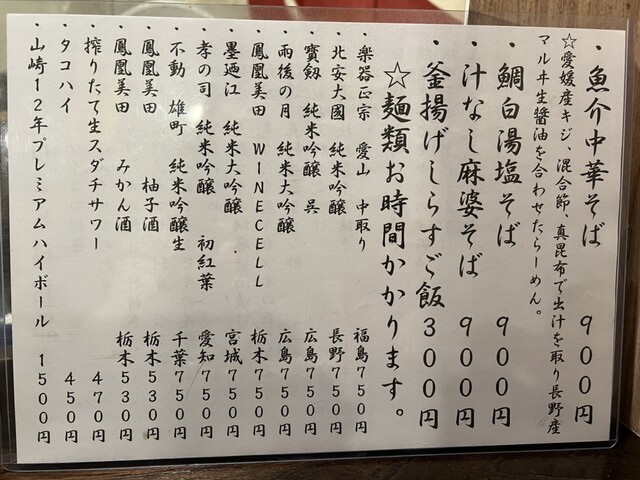 ・魚介中華そば 900円
☆愛媛産キジ、混合節、真昆布で出汁を取り長野産
マルヰ生醤油を合わせたらーめん。
・鯛白湯塩そば 900円
・汁なし麻婆そば 900円
・釜揚げしらすご飯 300円
☆麺類お時間かかります。
・楽器正宗 愛山 中取り 福島750円
・北安大國 純米吟醸 長野750円
・寳剱 純米吟醸 呉 広島750円
・雨後の月 純米大吟醸 広島750円
・鳳凰美田 WINECELL 栃木750円
・墨廼江 純米大吟醸 宮城750円
・孝の司 純米吟醸 初紅葉 愛知750円
・不動 雄町 純米吟醸生 千葉750円
・鳳凰美田 柚子酒 栃木530円
・鳳凰美田 みかん酒 栃木530円
・搾りたて生スダチサワー 470円
・タコハイ 450円
・山崎12年プレミアムハイボール 1500円